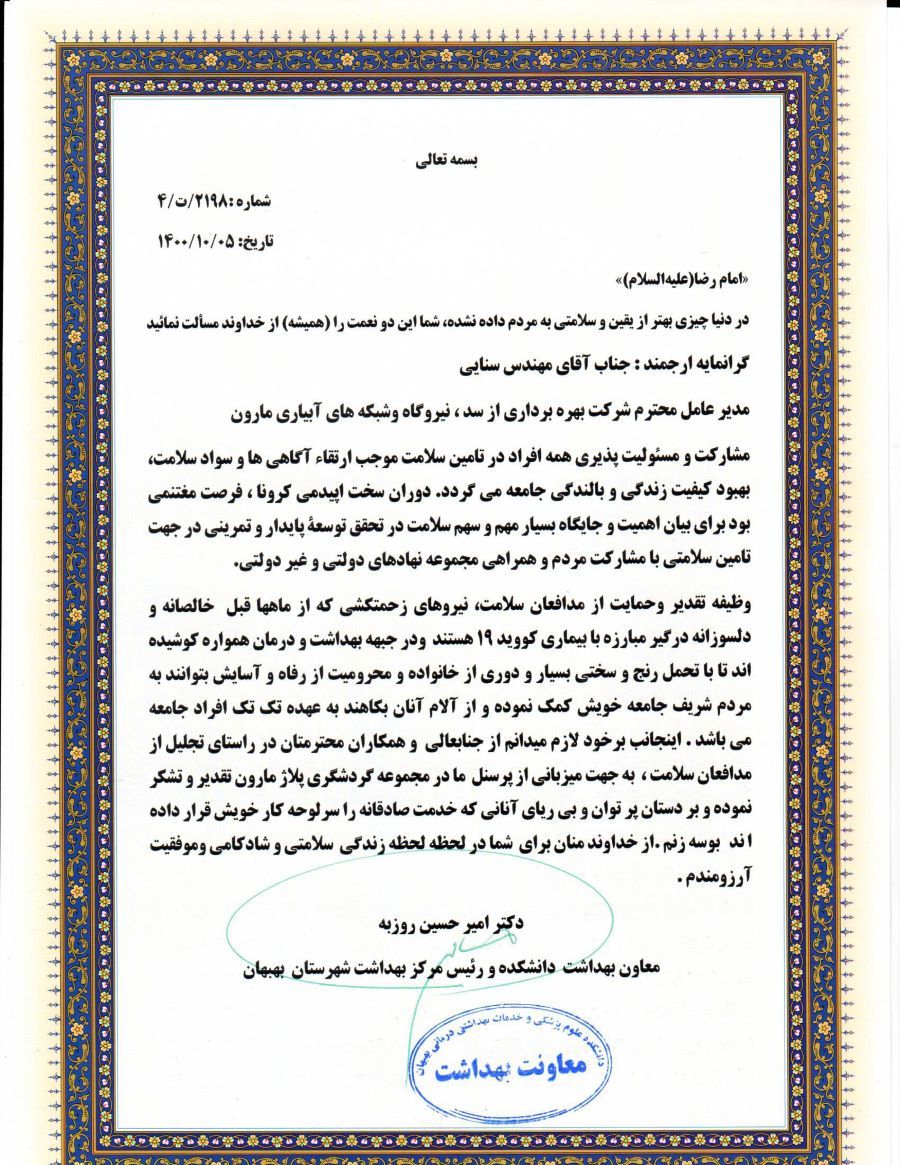 بسمه تعالی
شماره :۲۱۹۸/ت/۴
تاریخ: ۱۴۰۰/۱۰/۰۵
«امام رضا(علیه‌السلام)»
در دنیا چیزی بهتر از یقین و سلامتی به مردم داده نشده، شما این دو نعمت را (همیشه) از خداوند مسألت نمائید
گرانمایه ارجمند : جناب آقای مهندس سنایی
مدیر عامل محترم شرکت بهره برداری از سد ، نیروگاه وشبکه های آبیاری مارون
مشارکت و مسئولیت پذیری همه افراد در تامین سلامت موجب ارتقاء آگاهی ها و سواد سلامت،
بهبود کیفیت زندگی و بالندگی جامعه می گردد. دوران سخت اپیدمی کرونا ، فرصت مغتنمی
بود برای بیان اهمیت و جایگاه بسیار مهم و سهم سلامت در تحقق توسعهٔ پایدار و تمرینی در جهت
تامین سلامتی با مشارکت مردم و همراهی مجموعه نهادهای دولتی و غیر دولتی.
وظیفه تقدیر وحمایت از مدافعان سلامت، نیروهای زحمتکشی که از ماهها قبل خالصانه و
دلسوزانه درگیر مبارزه با بیماری کووید ۱۹ هستند ودر جبهه بهداشت و درمان همواره کوشیده
اند تا با تحمل رنج و سختی بسیار و دوری از خانواده و محرومیت از رفاه و آسایش بتوانند به
مردم شریف جامعه خویش کمک نموده و از آلام آنان بکاهند به عهده تک تک افراد جامعه
می باشد . اینجانب برخود لازم میدانم از جنابعالی و همکاران محترمتان در راستای تجلیل از
مدافعان سلامت ، به جهت میزبانی از پرسنل ما در مجموعه گردشگری پلاژ مارون تقدیر و تشکر
نموده و بر دستان پر توان و بی ریای آنانی که خدمت صادقانه را سرلوحه کار خویش قرار داده
اند بوسه زنم .از خداوند منان برای شما در لحظه لحظه زندگی سلامتی و شادکامی وموفقیت
آرزومندم .
دکتر امیر حسین روزبه
معاون بهداشت دانشکده و رئیس مرکز بهداشت شهرستان بهبهان
دانشکده علوم پزشکی و خدمات بهداشتی درمانی بهبهان
معاونت بهداشت